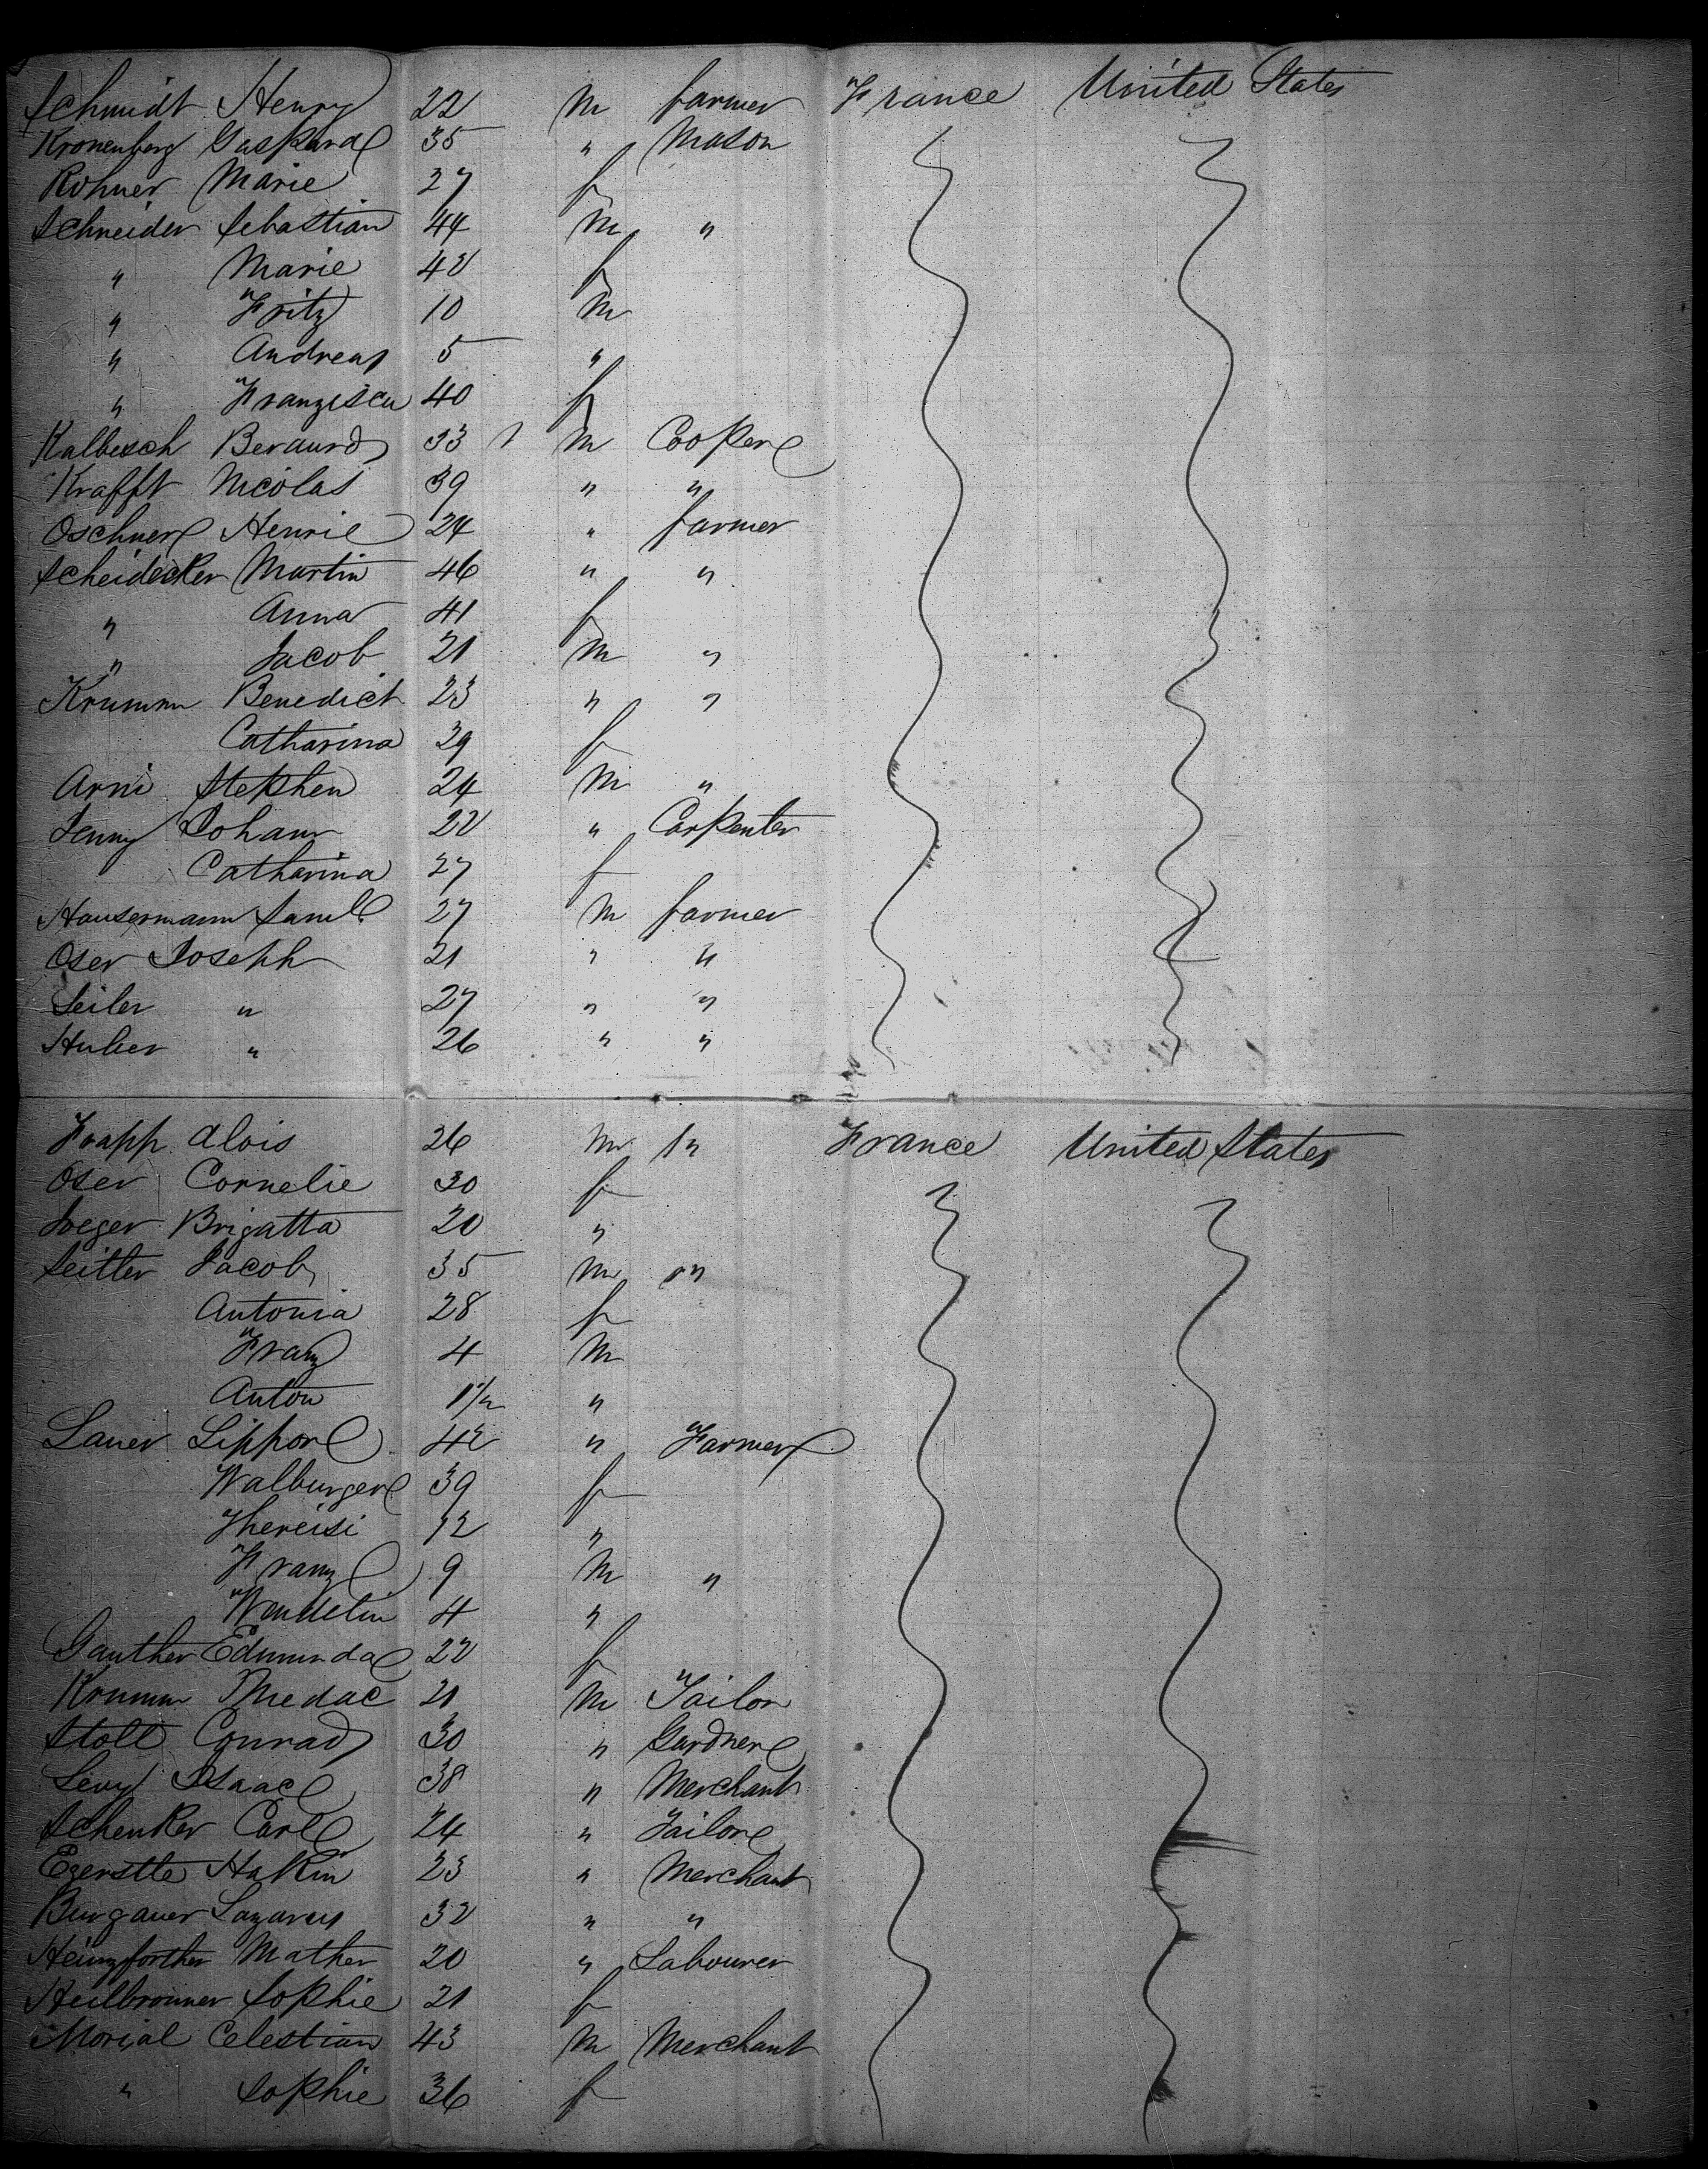 Schmidt Henry 22 m farmer France United States
Kronenberg Gaspard 35 " Mason
Rohner Marie 27 f
Schneider Sebastian 44 m "
" Marie 42 f
" Fritz 10 m
" Andreas 5 "
" Franzisca 40 f
Kalbesch Beraurd 33 m Cooper
Krafft Nicolas 39 " "
Oschner Henrie 24 " farmer
Scheidecker Martin 46 " "
" Anna 41 f
" Jacob 21 m "
Krumm Benedict 23 " "
Catharina 29 f
Arni Stephen 24 m "
Jenny Johann 22 " Carpenter
Catharina 27 f
Hausermann Saml 27 m farmer
Oser Joseph 21 " "
Seiler " 27 " "
Huber " 26 " "
Frapp Alois 26 m " France United States
Oser Cornelie 30 f
Joeger Brigatta 20 "
Seitter Jacob 35 m "
Antonia 28 f
Franz 4 m
Anton 1 1/2 "
Lauer Lippor 42 " Farmer
Walburger 39 f
Thereisi 12 "
Franz 9 m "
Wendelin 4 "
Gauther Edmunda 22 f
Krumm 21 m Tailor
Stoll Conrad 30 " Gardner
Levy Isaac 38 " Merchant
Schenker Carl 24 " Tailor
Ezerstle Hakin 23 " Merchant
Burgauer Lazarus 32 " "
Heinzforther Mather 20 " Labourer
Heilbronner Sophie 21 f
Morial Celestian 43 m Merchant
" Sophie 36 f